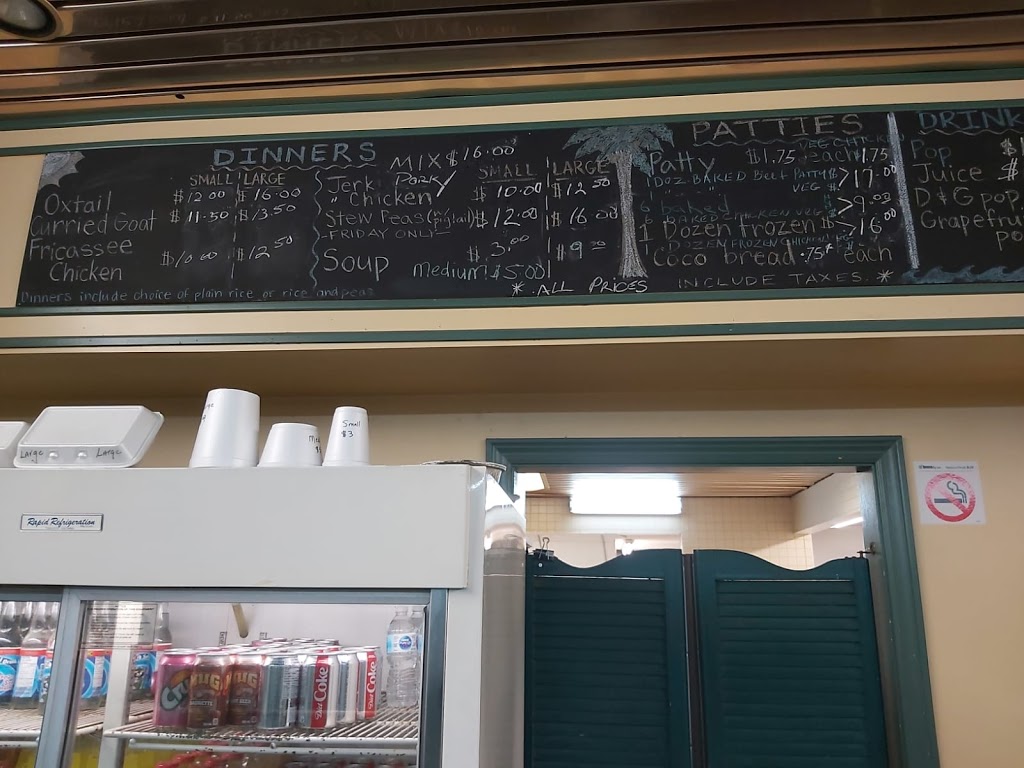 DINNERS
SMALL LARGE
Oxtail $12.00 $16.00
Curried Goat $11.50 $13.50
Fricassee
Chicken $10.00 $12.50
Dinners include choice of plain rice or rice and peas
MIX $16.00
SMALL LARGE
Jerk Pork
" Chicken $10.00 $12.50
Stew Peas $12.00 $16.00
-FRIDAY ONLY-
Soup $3.00 $9.50
medium $5.00
* ALL PRICES INCLUDE TAXES. *
PATTIES
VEG CHIC
Patty $1.75 each 1.75
1 DOZ BAKED Beef PATTY $
VEG $ >17.00
BAKED CHICKEN VEG >9.00
1 Dozen frozen $ >16.00
DOZEN FROZEN CHICKEN
Coco bread .75¢ each
DRINK
Pop $1
Juice $
D&G pop
Grapefru
po
Large Large
Small
$3
Rapid Refrigeration
MUG
Diet Coke
Coke